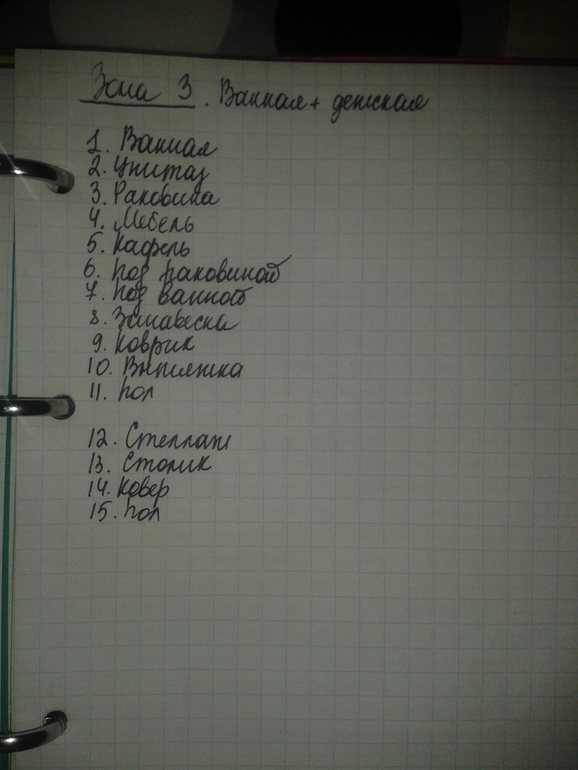 Зона 3. Ванная + детская
1. Ванная
2. Унитаз
3. Раковина
4. Мебель
5. Кафель
6. Под раковиной
7. Под ванной
8. Занавеска
9. Коврик
10. Вытяжка
11. Пол
12. Стеллаж
13. Столик
14. Ковер
15. Пол